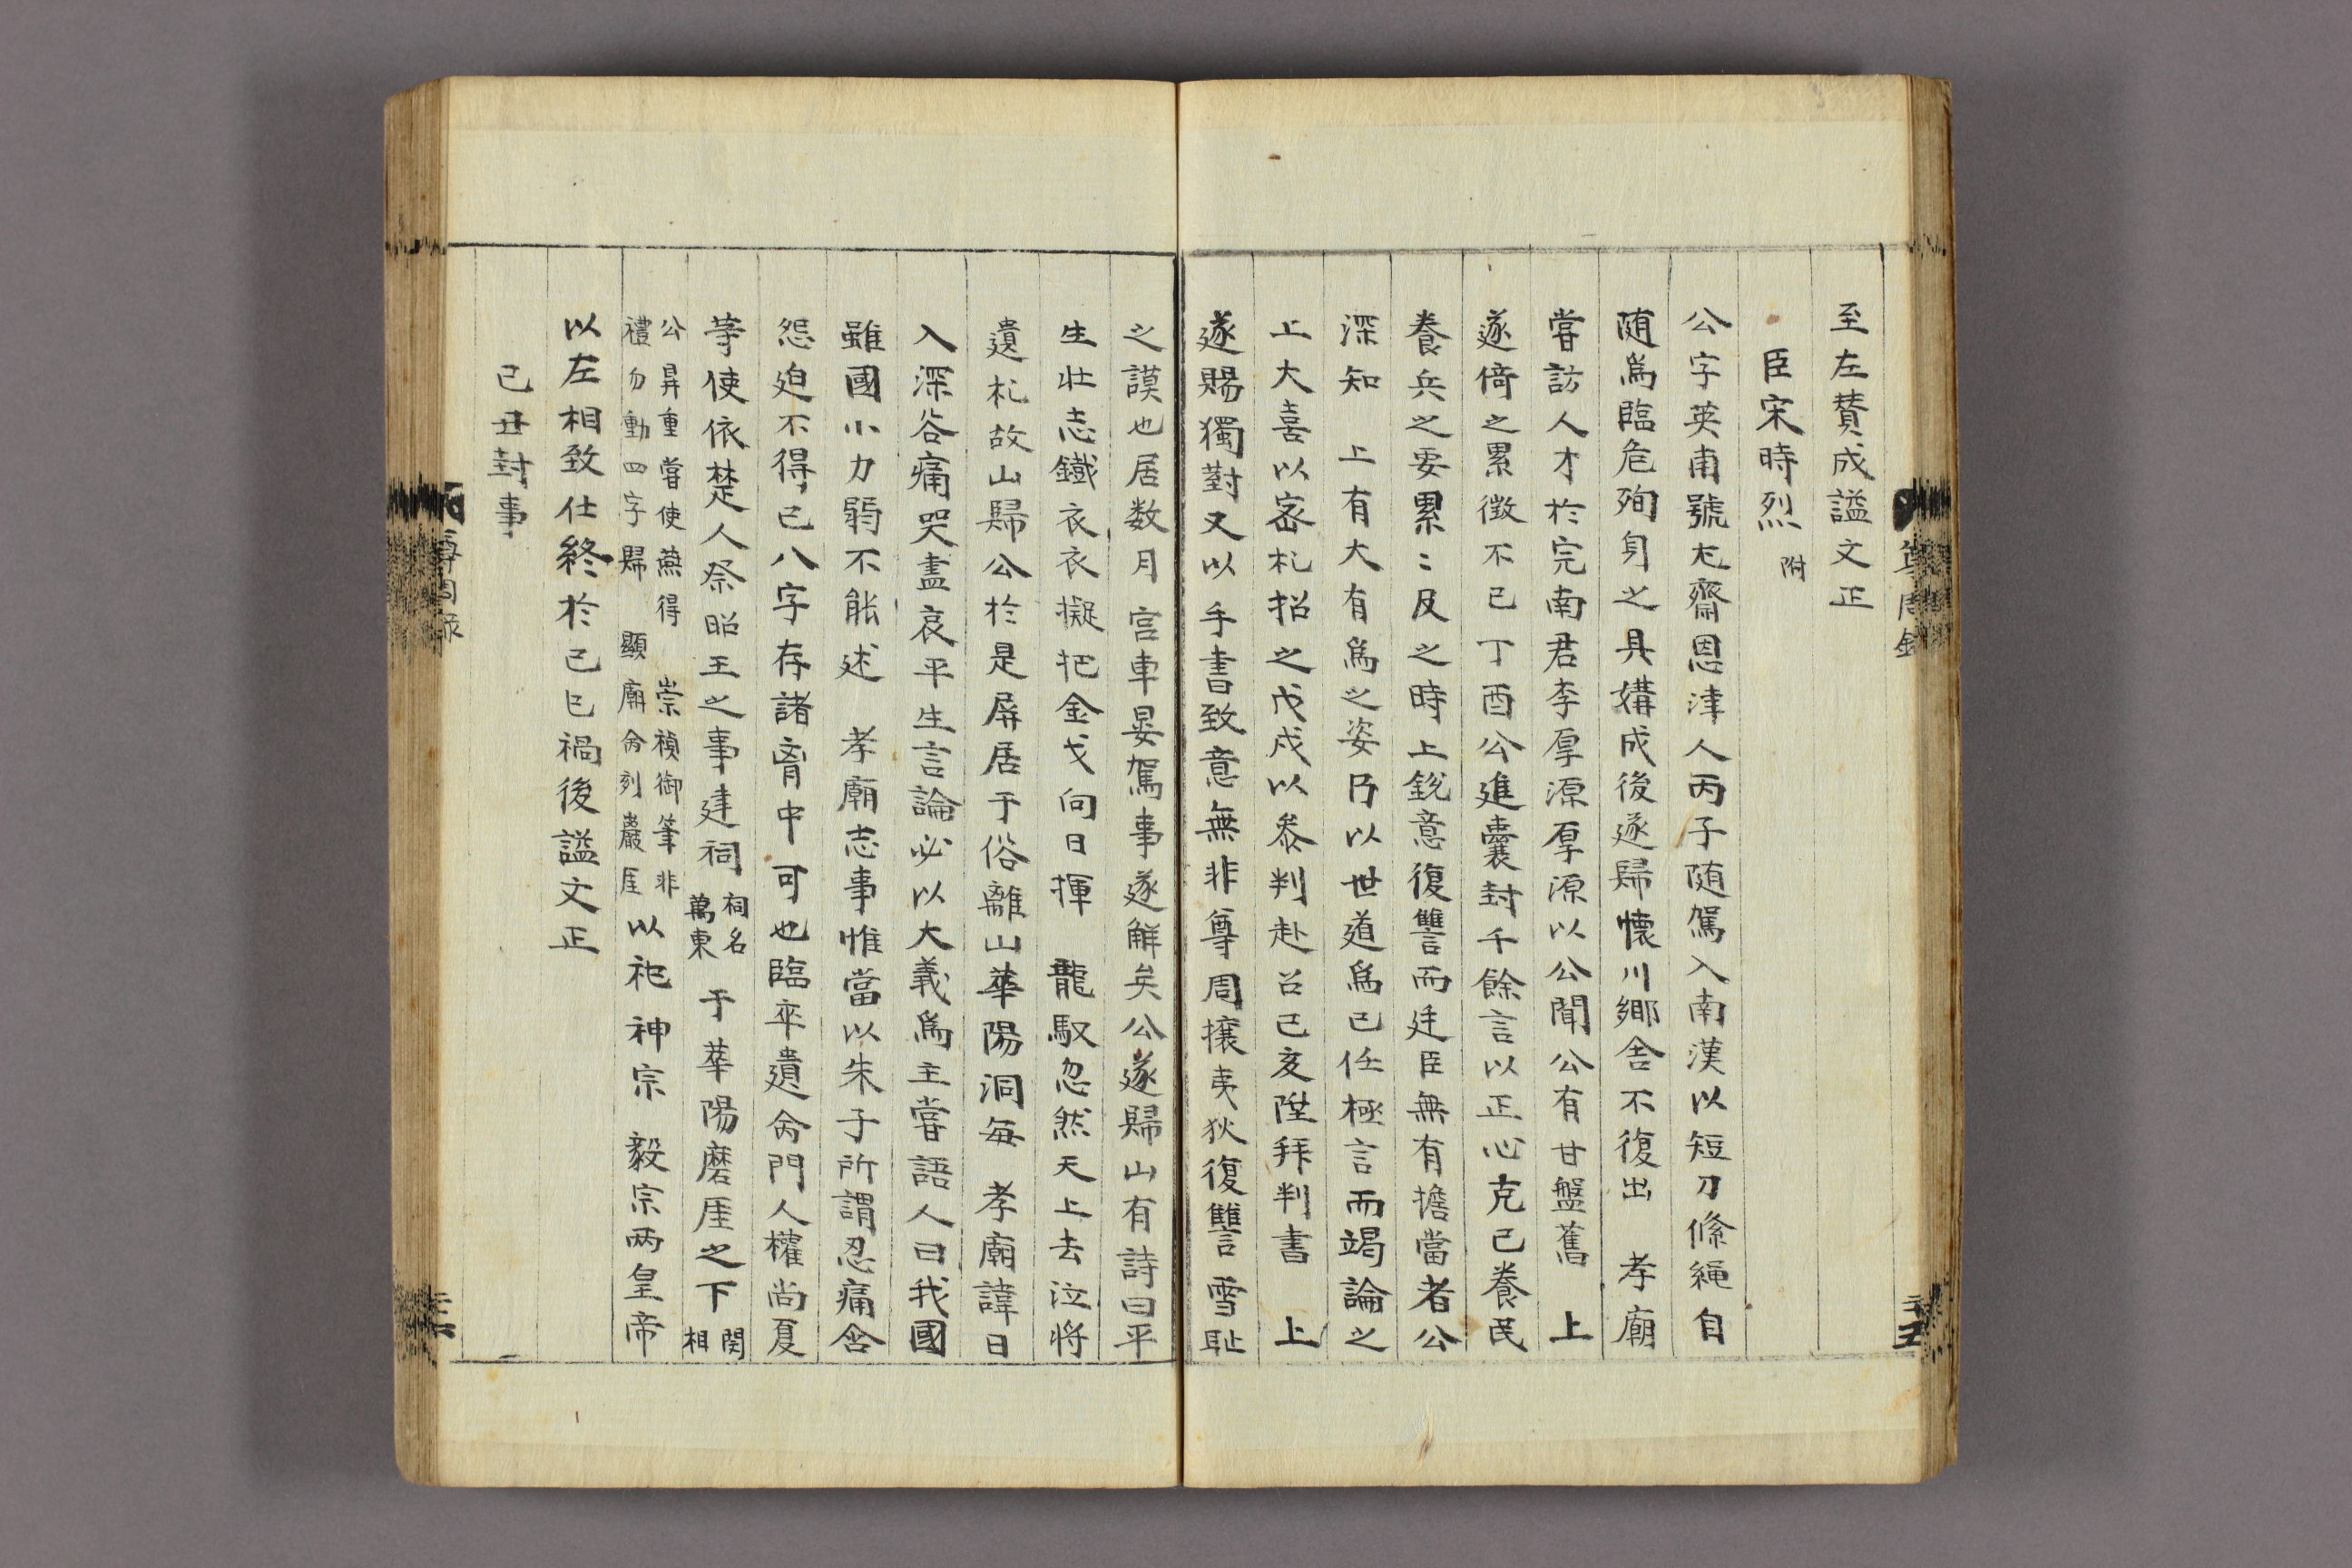 至左贊成謚文正
臣宋時烈 附
公字英甫號尤齋恩津人丙子随駕入南漢以短刀絛繩自
随爲臨危殉身之具媾成後遂歸懷川鄉舍不復出 孝廟
甞訪人才於完南君李厚源厚源以公聞公有甘盤舊 上
遂倚之累徵不已丁酉公進囊封千餘言以正心克己養民
養兵之要累〻及之時上銳意復讐而廷臣無有擔當者公
深知 上有大有爲之姿乃以世道爲己任極言而竭論之
上大喜以密札招之戊戌以叅判赴召己亥陞拜判書 上
遂賜獨對又以手書致意無非尊周攘夷狄復讐雪耻
之謨也居数月 宮車晏駕事遂觧矣公遂歸山有詩曰平
生壯志鐵衣衣擬把金戈向日揮 龍馭忽然天上去泣將
遺札故山歸公於是屏居于俗離山華陽洞每 孝廟諱日
入深谷痛哭盡哀平生言論必以大義爲主甞語人曰我國
雖國小力弱不能述 孝廟志事惟當以朱子所謂忍痛含
怨迫不得已八字存諸胷中可也臨卒遺命門人權尚夏
等使依楚人祭昭王之事建祠 祠名萬東 于華陽磨厓之下 閔相
公鼎重嘗使燕得 崇禎御筆非
禮勿動四字歸 顯廟命刻巖厓
以祀 神宗 毅宗兩皇帝
以左相致仕終於己巳禍後謚文正
己丑封事
尊周錄